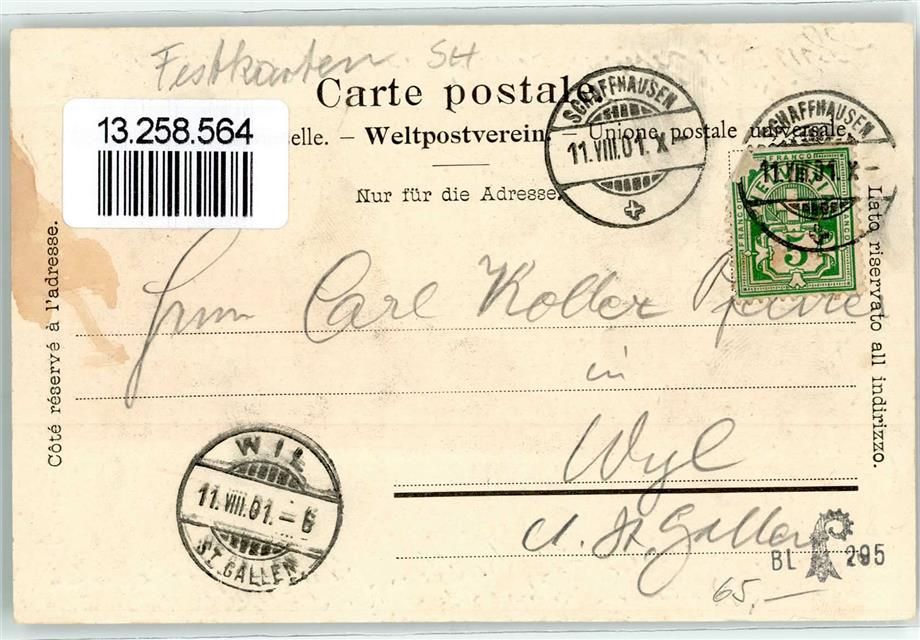 Festkarten SH
Carte postale
13.258.564
elle. — Weltpostverein. — Unione postale universale.
Nur für die Adresse.
SCHAFFHAUSEN
11.VIII.01.X
SCHAFFHAUSEN
11.VIII.01.X
FRANCO
HELVETIA
FRANCO
FRANCO
5
Côté réservé à l'adresse.
Lato riservato all indirizzo.
Herrn Carl Koller
in
Wyl
Ct. St. Gallen
WIL
11.VIII.01.-6
ST. GALLEN
BL 295
65,—